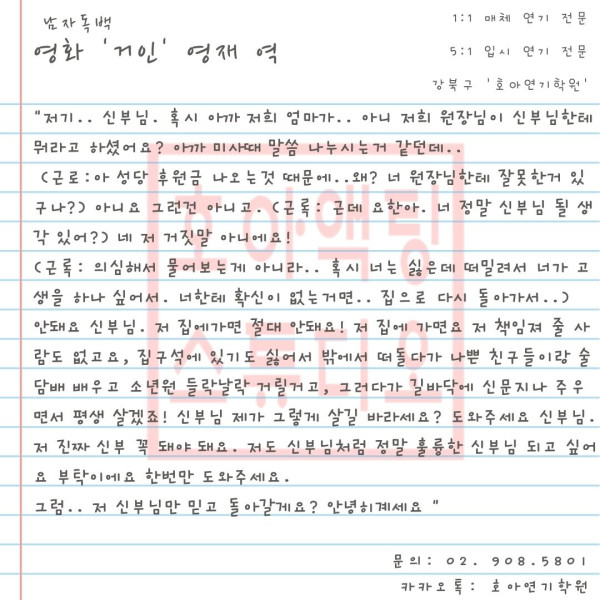 남자독백
영화 '거인' 영재 역
1:1 매체 연기 전문
5:1 입시 연기 전문
강북구 '호아연기학원'
"저기.. 신부님. 혹시 아까 저희 엄마가.. 아니 저희 원장님이 신부님한테
뭐라고 하셨어요? 아까 미사때 말씀 나누시는거 같던데..
(근로:아 성당 후원금 나오는것 때문에..왜? 너 원장님한테 잘못한거 있
구나?) 아니요 그런건 아니고. (근록: 근데 요한아. 너 정말 신부님 될 생
각 있어?) 네 저 거짓말 아니에요!
(근록: 의심해서 물어보는게 아니라.. 혹시 너는 싫은데 떠밀려서 너가 고
생을 하나 싶어서. 너한테 확신이 없는거면.. 집으로 다시 돌아가서..)
안돼요 신부님. 저 집에가면 절대 안돼요! 저 집에 가면요 저 책임져 줄 사
람도 없고요, 집구석에 있기도 싫어서 밖에서 떠돌다가 나쁜 친구들이랑 술
담배 배우고 소년원 들락날락 거릴거고, 그러다가 길바닥에 신문지나 주우
면서 평생 살겠죠! 신부님 제가 그렇게 살길 바라세요? 도와주세요 신부님.
저 진짜 신부 꼭 돼야 돼요. 저도 신부님처럼 정말 훌륭한 신부님 되고 싶어
요 부탁이에요 한번만 도와주세요.
그럼.. 저 신부님만 믿고 돌아갈게요? 안녕히계세요 "
호아액팅
스튜디오
문의: 02. 908.5801
카카오톡: 호아연기학원